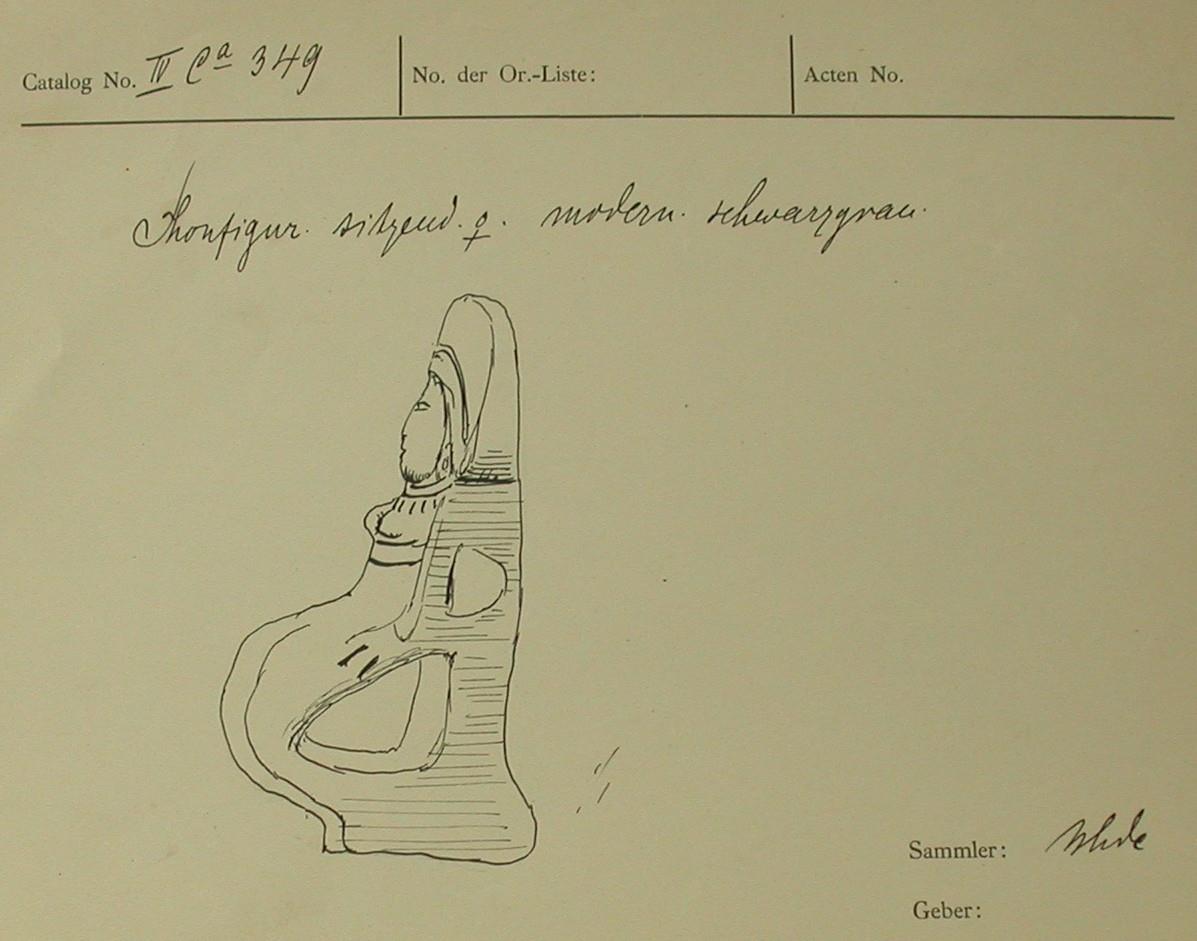 Catalog No. IV Ca 349 No. der Or.-Liste: Acten No.
Thonfigur. sitzend. ♀. modern. schwarzgrau.
Sammler: Uhde
Geber: